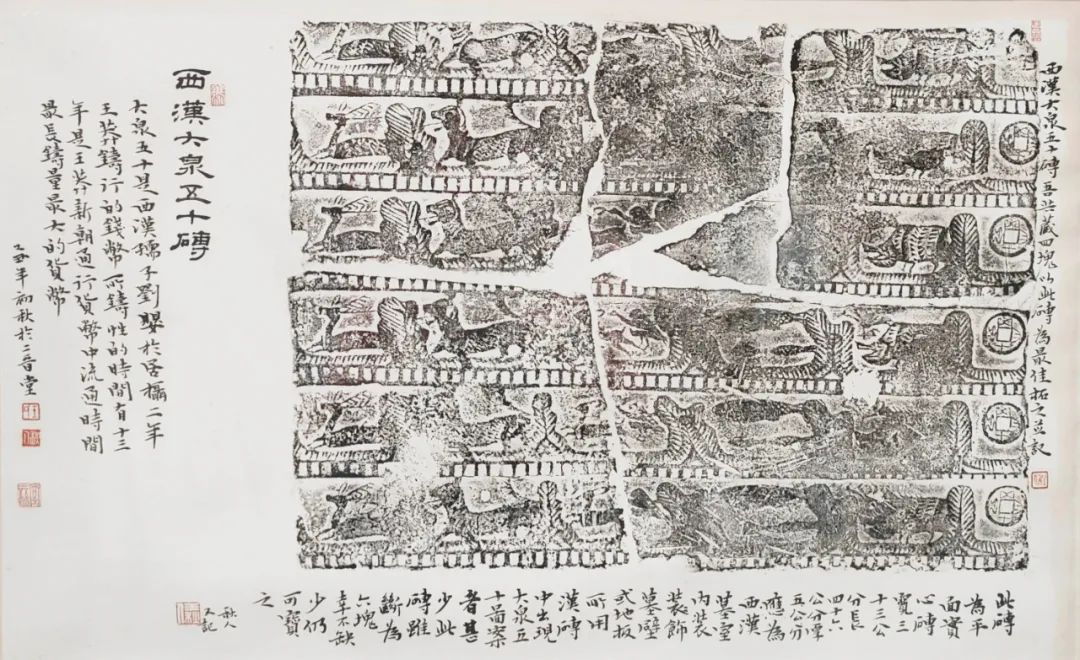 西漢大泉五十磚吾共藏四塊以此磚為最佳拓之並記
西漢大泉五十磚
大泉五十是西漢孺子劉嬰於居攝二年
王莽鑄行的錢幣所鑄性的時間有十三
年是王莽新朝通行貨幣中流通時間
最長鑄量最大的貨幣
年初秋於二音堂
此磚
為平
面實
心磚
寬三
十三公
分長
四十六
公分厚
五公分
應為
西漢
墓室
內裝
裝飾
墓壁
或地板
所用
漢磚
中出現
大泉五
十啚案
者甚
少此
磚雖
斷為
六塊
幸不缺
少仍
可寶
之
秋人
又記